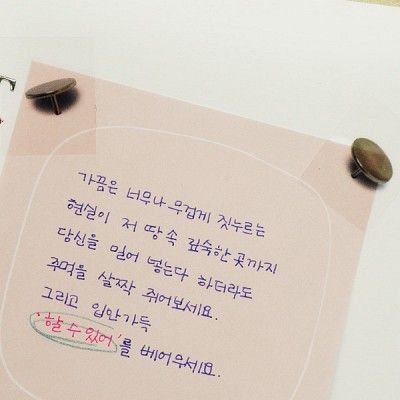 가끔은 너무나 무겁게 짓누르는
현실이 저 땅속 깊숙한 곳까지
당신을 밀어 넣는다 하더라도
주먹을 살짝 쥐어보세요.
그리고 입안가득
'할 수 있어'를 베어무세요.